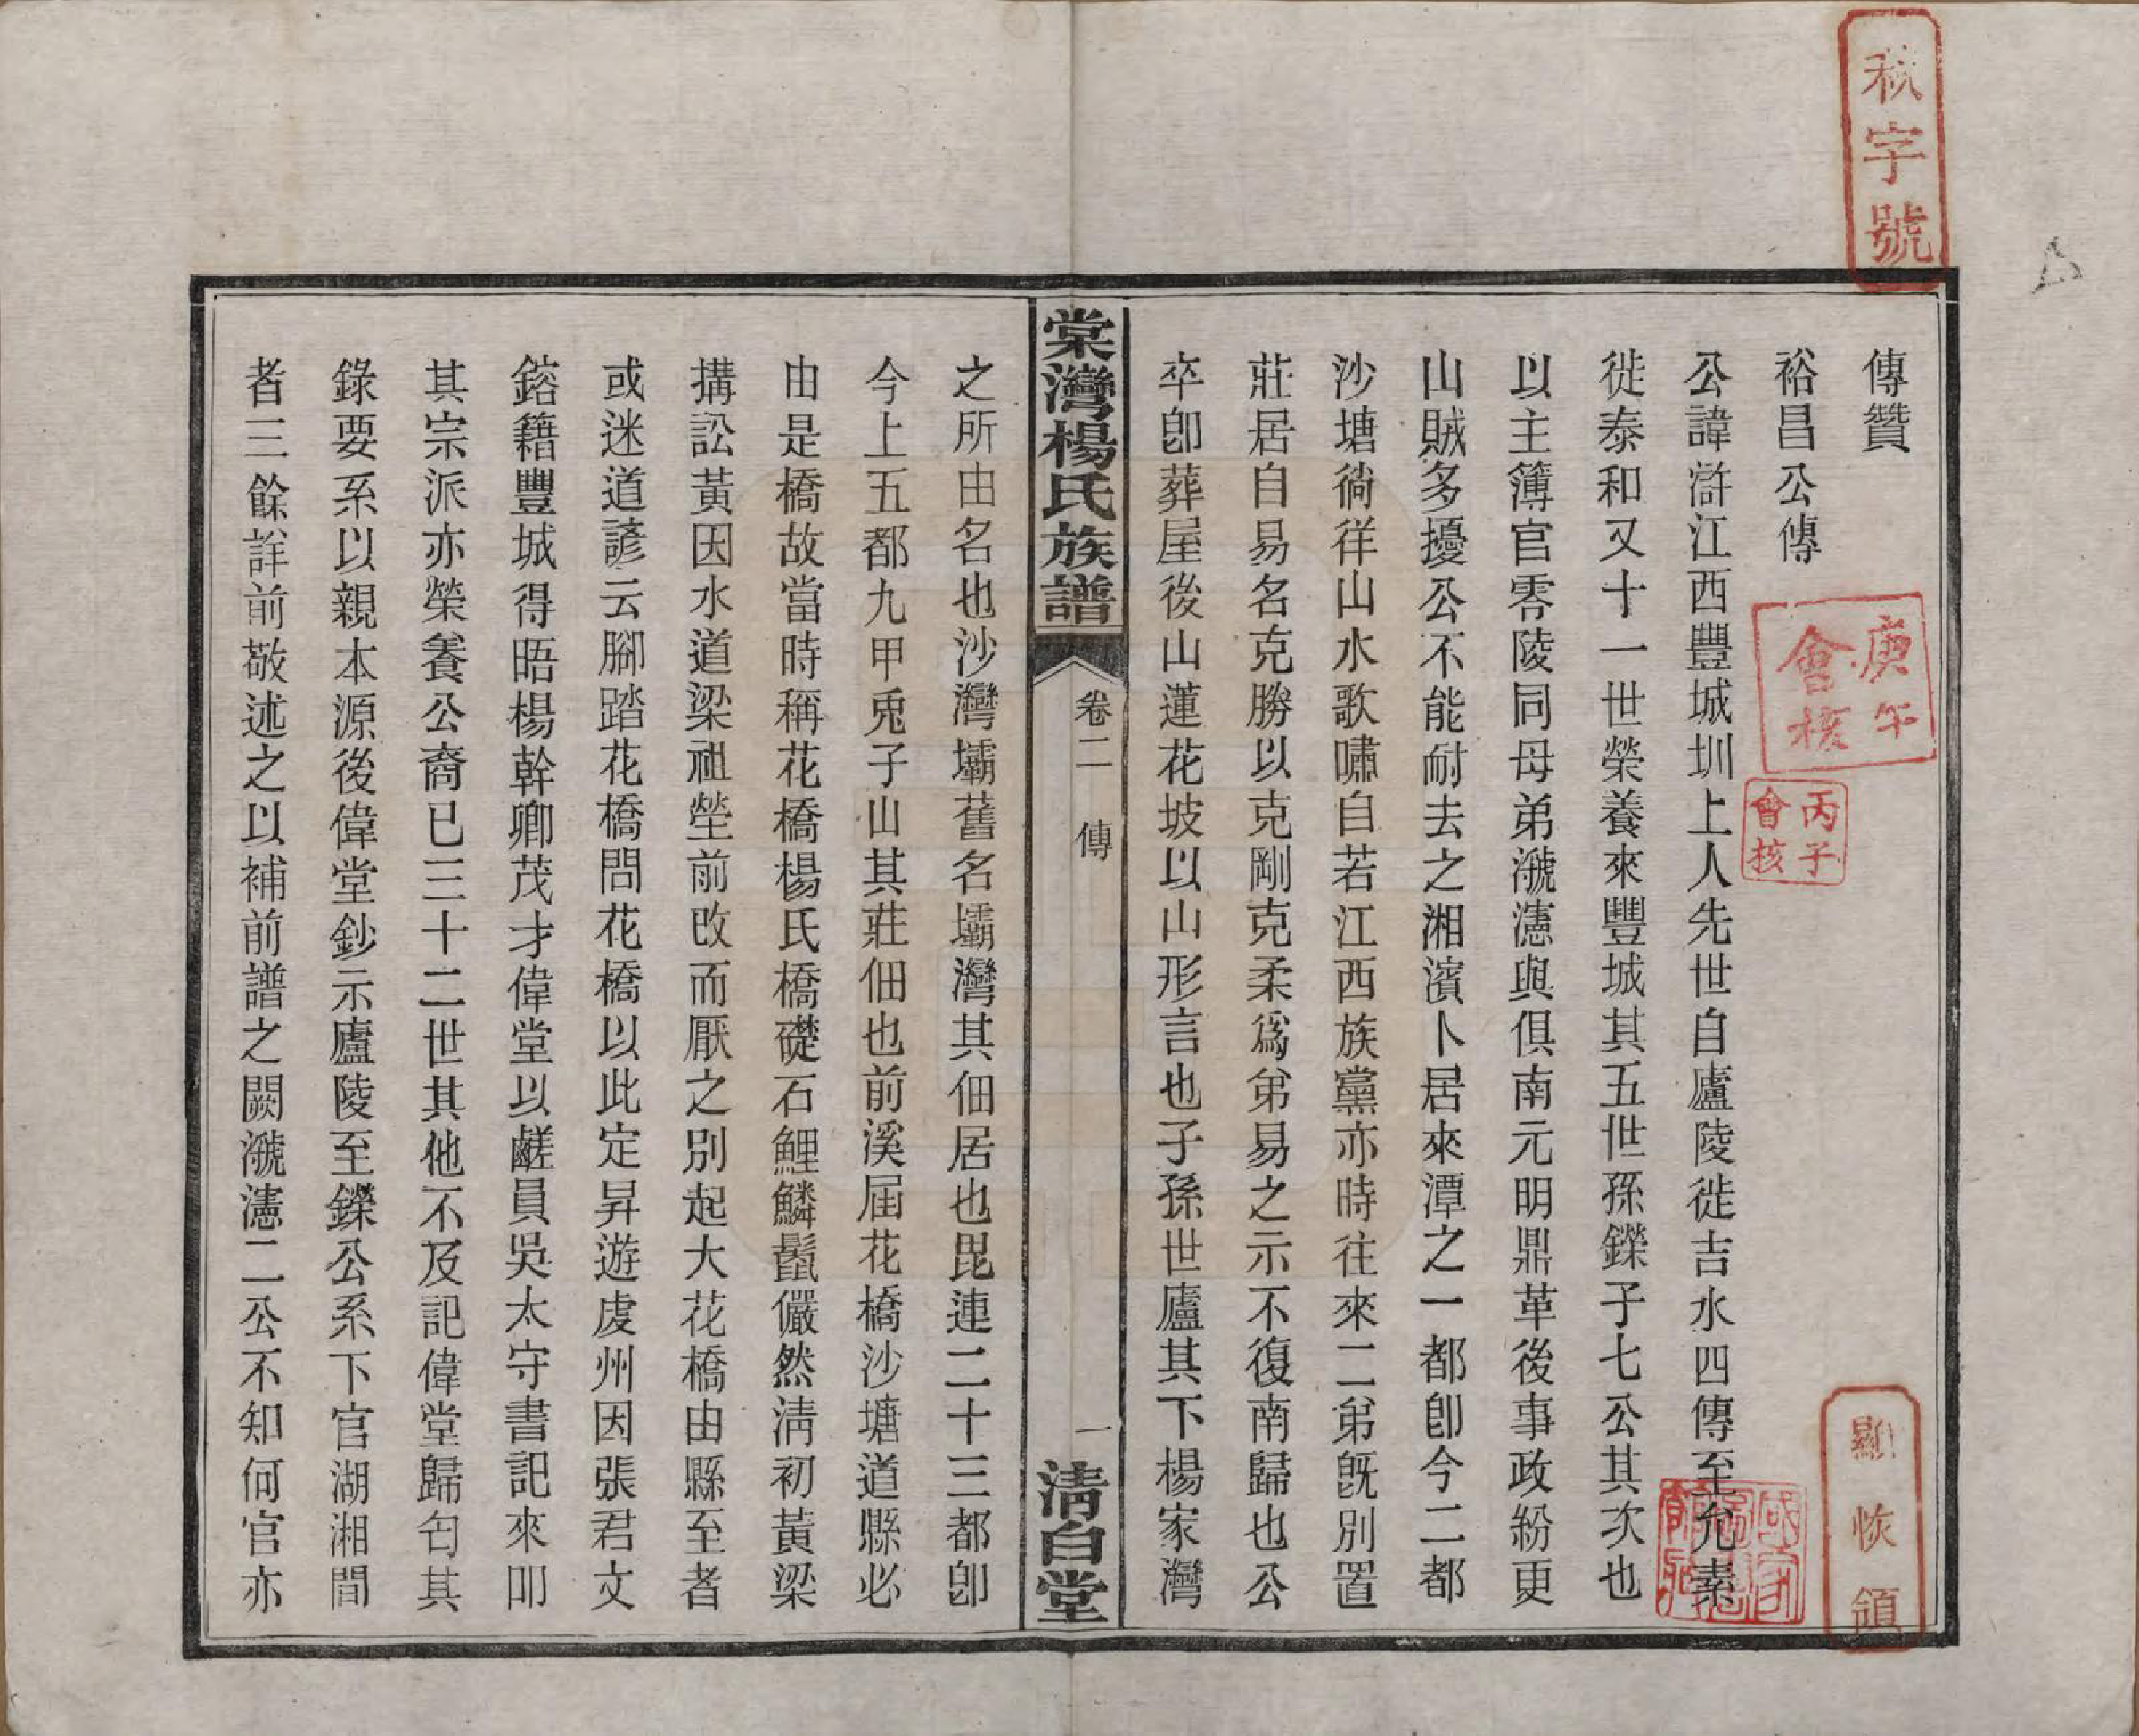 傳贊
裕昌公傳
公諱滸江西豐城圳上人先世自廬陵徙吉水四傳至允素
徙泰和又十一世榮養來豐城其五世孫鑠子七公其次也
以主簿官零陵同母弟滮濾與俱南元明鼎革後事政紛更
山賊多擾公不能耐去之湘濱卜居來潭之一都卽今二都
沙塘徜徉山水歌嘯自若江西族黨亦時往來二弟旣別置
莊居自易名克勝以克剛克柔爲弟易之示不復南歸也公
卒卽葬屋後山蓮花坡以山形言也子孫世廬其下楊家灣
棠灣楊氏族譜
卷二
傳
一
淸白堂
之所由名也沙灣壩舊名壩灣其佃居也毘連二十三都卽
今上五都九甲兎子山其莊佃也前溪屆花橋沙塘道縣必
由是橋故當時稱花橋楊氏橋礎石鯉鱗鬣儼然淸初黃梁
搆訟黃因水道梁祖塋前改而厭之別起大花橋由縣至者
或迷道諺云腳踏花橋問花橋以此定昇遊虔州因張君文
鎔籍豐城得晤楊幹卿茂才偉堂以鹺員吳太守書記來叩
其宗派亦榮養公裔已三十二世其他不及記偉堂歸匄其
錄要系以親本源後偉堂鈔示廬陵至鑠公系下官湖湘間
者三餘詳前敬述之以補前譜之闕滮濾二公不知何官亦
秋字號
庚午
會核
丙子
會核
顯
恢
領